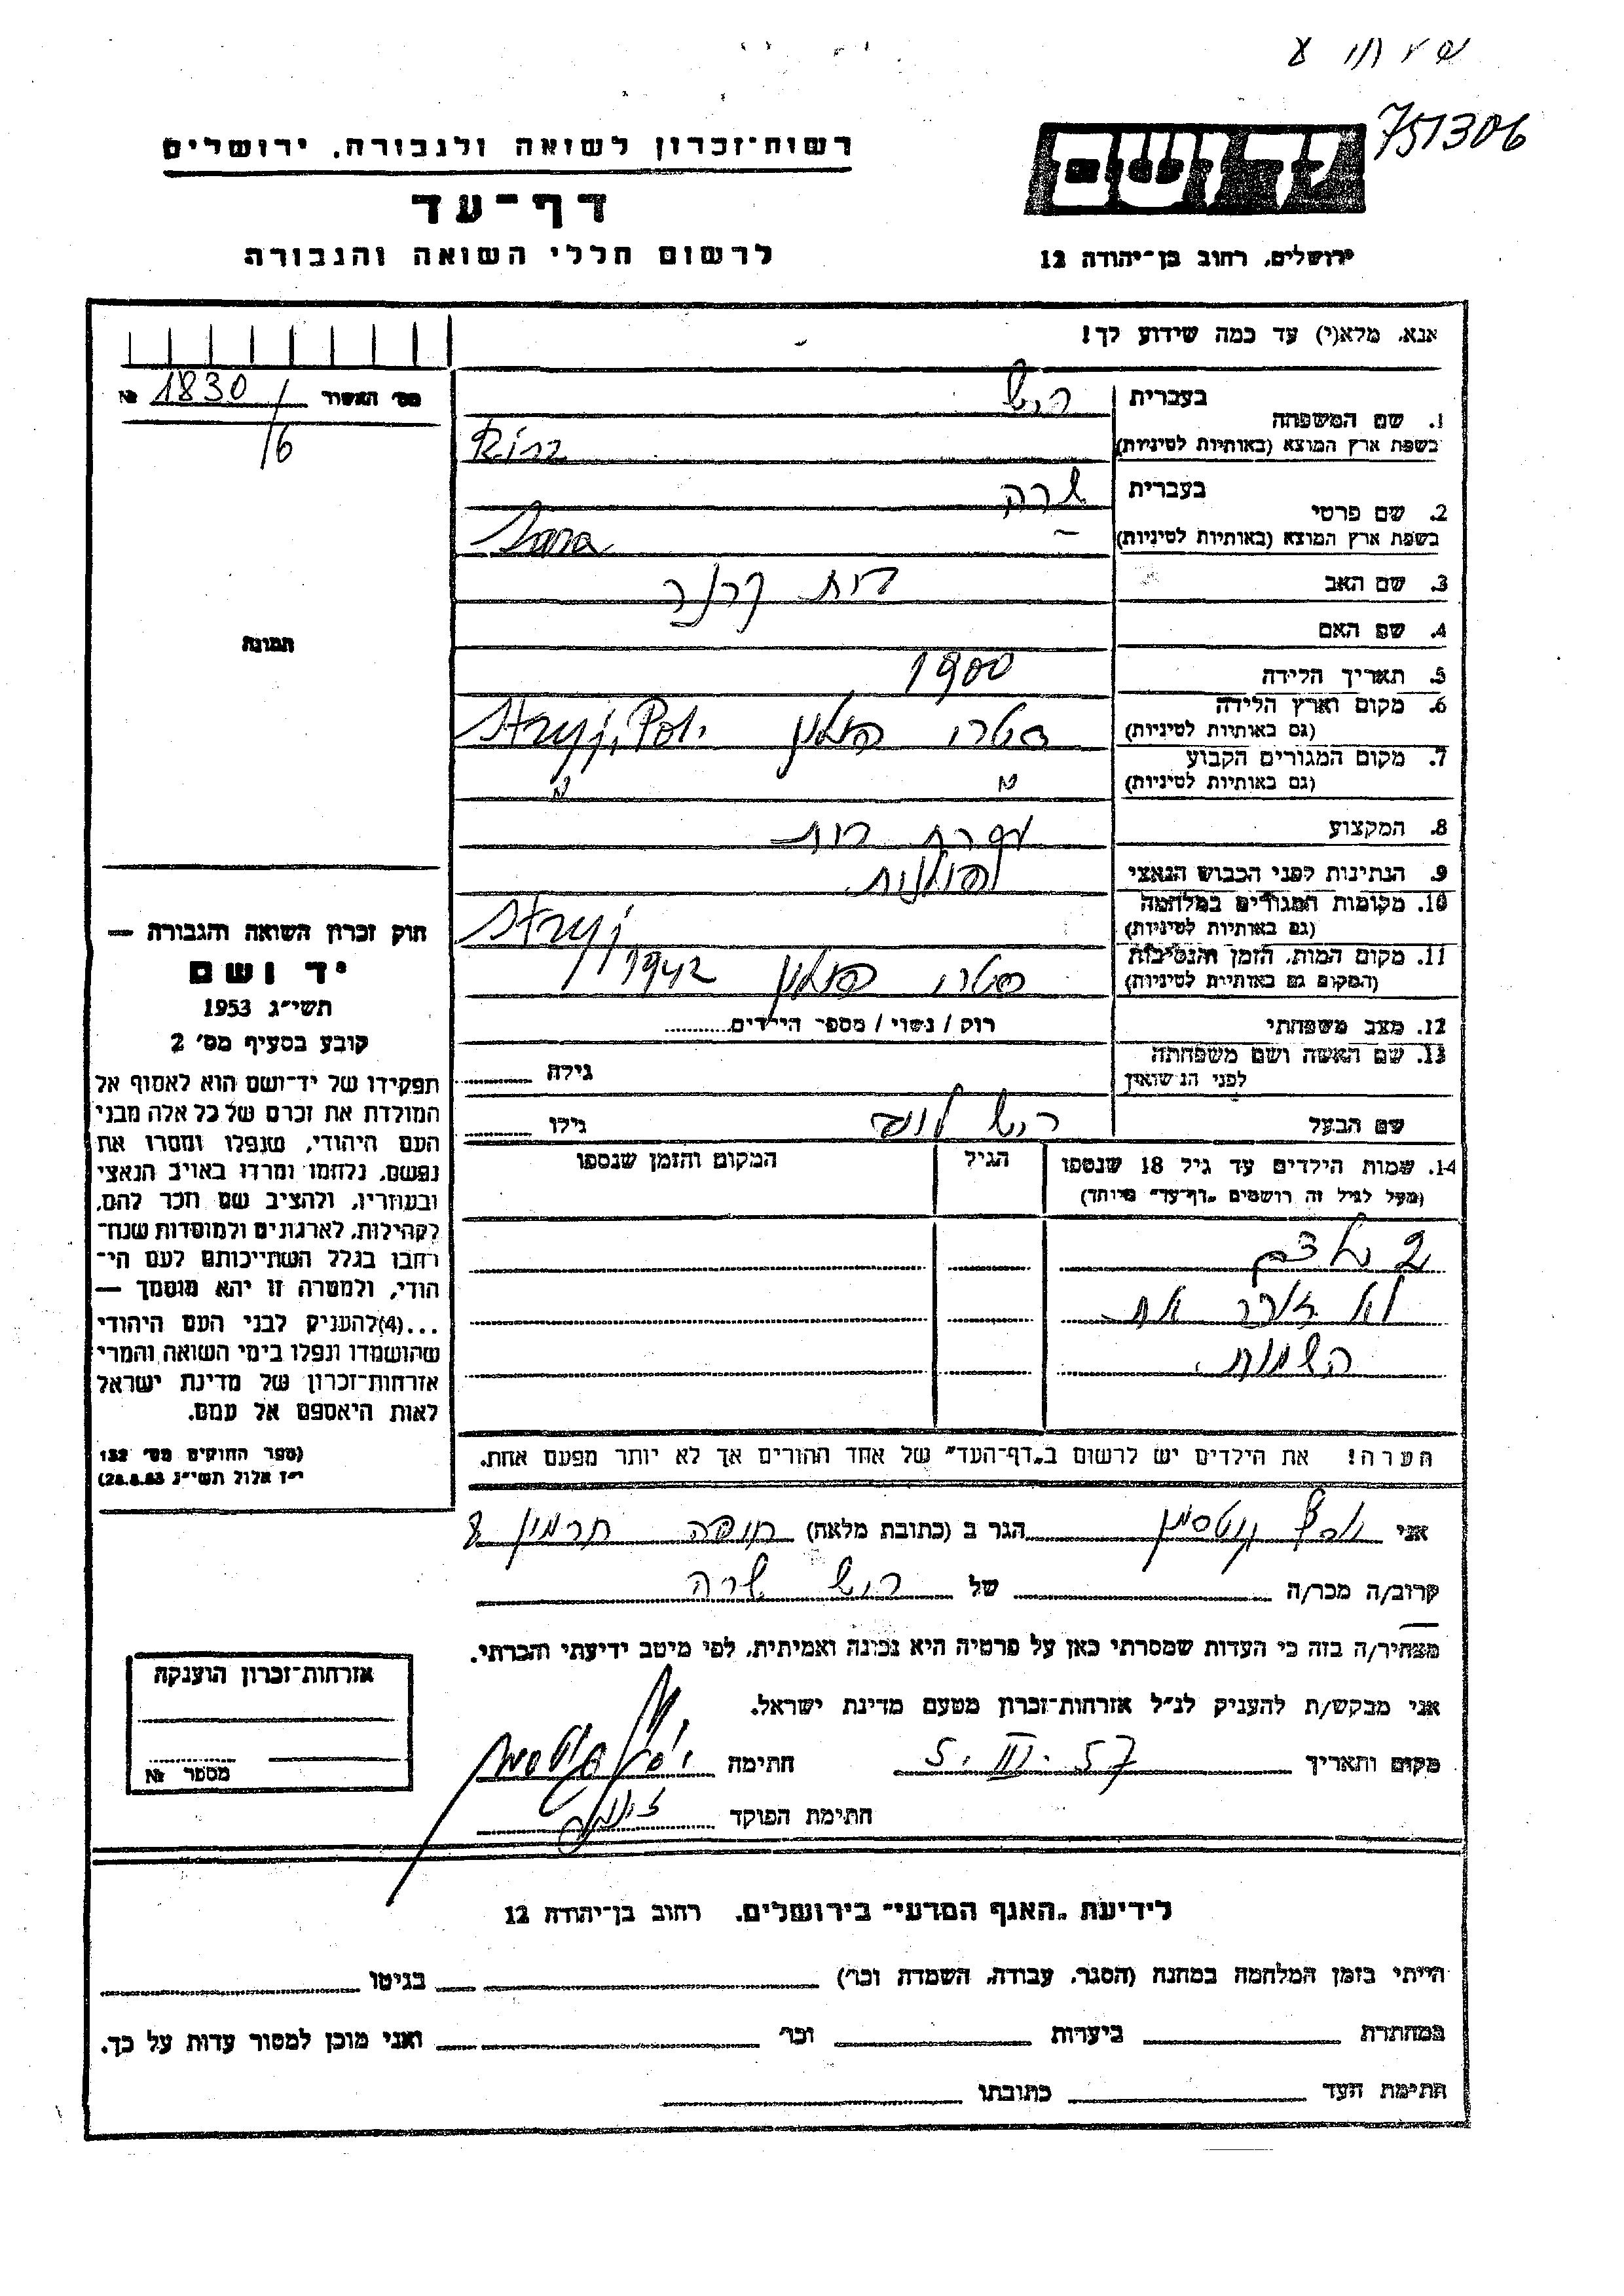 751306
יד ושם
ירושלים, רחוב בן־יהודה 12
רשות־זכרון לשואה ולגבורה, ירושלים
דף־עד
לרשום חללי השואה והגבורה
אנא, מלא(י) עד כמה שידוע לך!
מס' האשור 1830 №
/6
תמונה
1. שם המשפחה
בעברית
ריש
בשפת ארץ המוצא (באותיות לטיניות)
2. שם פרטי
בעברית שרה
בשפת ארץ המוצא (באותיות לטיניות) Sara
3. שם האב
4. שם האם
5. תאריך הלידה 1900
6. מקום וארץ הלידה
(גם באותיות לטיניות) סטרי פולין Stryj, Pol.
7. מקום המגורים הקבוע
(גם באותיות לטיניות) " "
8. המקצוע עקרת בית
9. הנתינות לפני הכבוש הנאצי פולנית
10. מקומות המגורים במלחמה
(גם באותיות לטיניות) Stryj
11. מקום המות, הזמן והנסיבות
(המקום גם באותיות לטיניות) סטרי פולין 1942
12. מצב משפחתי רוק / נשוי / מספר הילדים
13. שם האשה ושם משפחתה
לפני הנשואין גילה
שם הבעל ריש גילו
14. שמות הילדים עד גיל 18 שנספו
(מעל לגיל זה רושמים „דף־עד" מיוחד)
הגיל
המקום והזמן שנספו
2 ילדים
לא זוכר את
השמות.
הערה! את הילדים יש לרשום ב„דף־העד" של אחד ההורים אך לא יותר מפעם אחת.
חוק זכרון השואה והגבורה —
יד ושם
תשי״ג 1953
קובע בסעיף מס' 2
תפקידו של יד־ושם הוא לאסוף אל
המולדת את זכרם של כל אלה מבני
העם היהודי, שנפלו ומסרו את
נפשם, נלחמו ומרדו באויב הנאצי
ובעוזריו, ולהציב שם וזכר להם,
לקהילות, לארגונים ולמוסדות שנח־
רבו בגלל השתייכותם לעם הי־
הודי, ולמטרה זו יהא מוסמך —
...(4)להעניק לבני העם היהודי
שהושמדו ונפלו בימי השואה והמרי
אזרחות־זכרון של מדינת ישראל
לאות היאספם אל עמם.
(ספר החוקים מס' 132
י״ז אלול תשי״ג 28.8.53)
אני הגר ב (כתובת מלאה) חיפה 8
קרוב/ה מכר/ה של ריש שרה
מצהיר/ה בזה כי העדות שמסרתי כאן על פרטיה היא נכונה ואמיתית, לפי מיטב ידיעתי והכרתי.
אני מבקש/ת להעניק לנ״ל אזרחות־זכרון מטעם מדינת ישראל.
מקום ותאריך 5. III. 57 חתימה
חתימת הפוקד
אזרחות־זכרון הוענקה
מספר №
לידיעת „האגף המדעי" בירושלים, רחוב בן־יהודה 12
הייתי בזמן המלחמה במחנה (הסגר, עבודה, השמדה וכו') בגיטו
במחתרת ביערות וכו' ואני מוכן למסור עדות על כך.
חתימת העד כתובתו